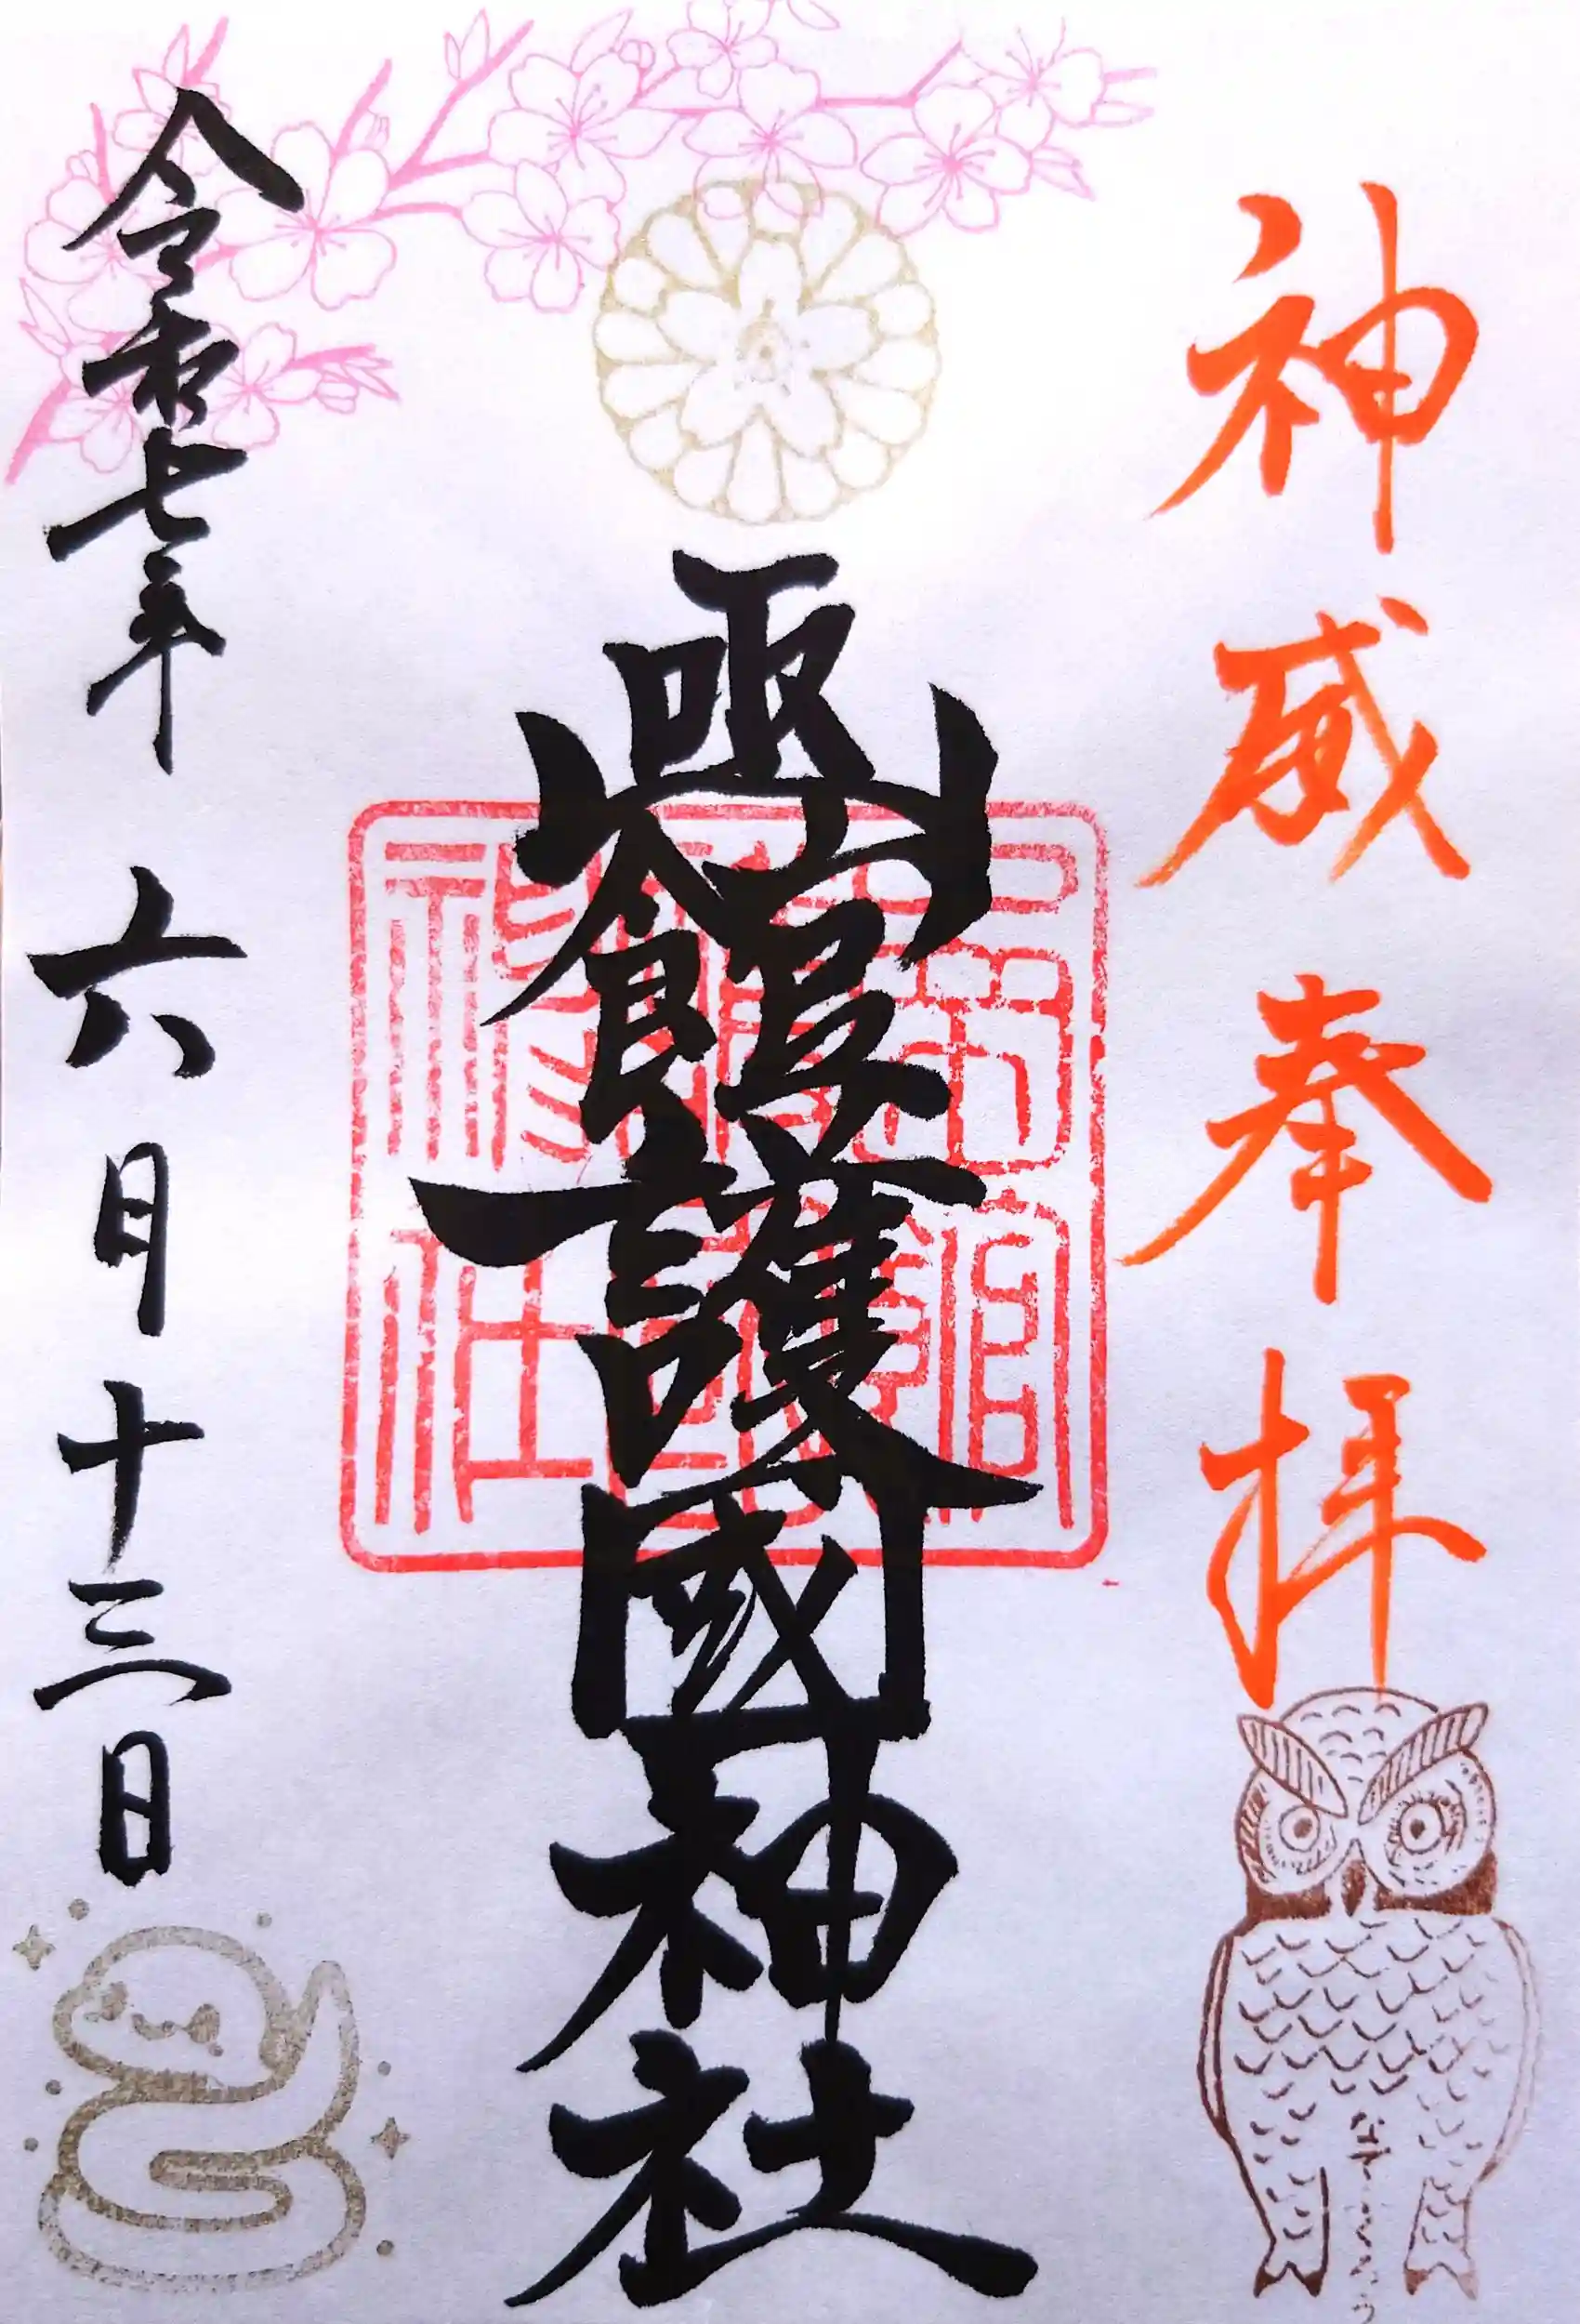 神威奉拝
凾館護國神社
令和七年 六月十三日